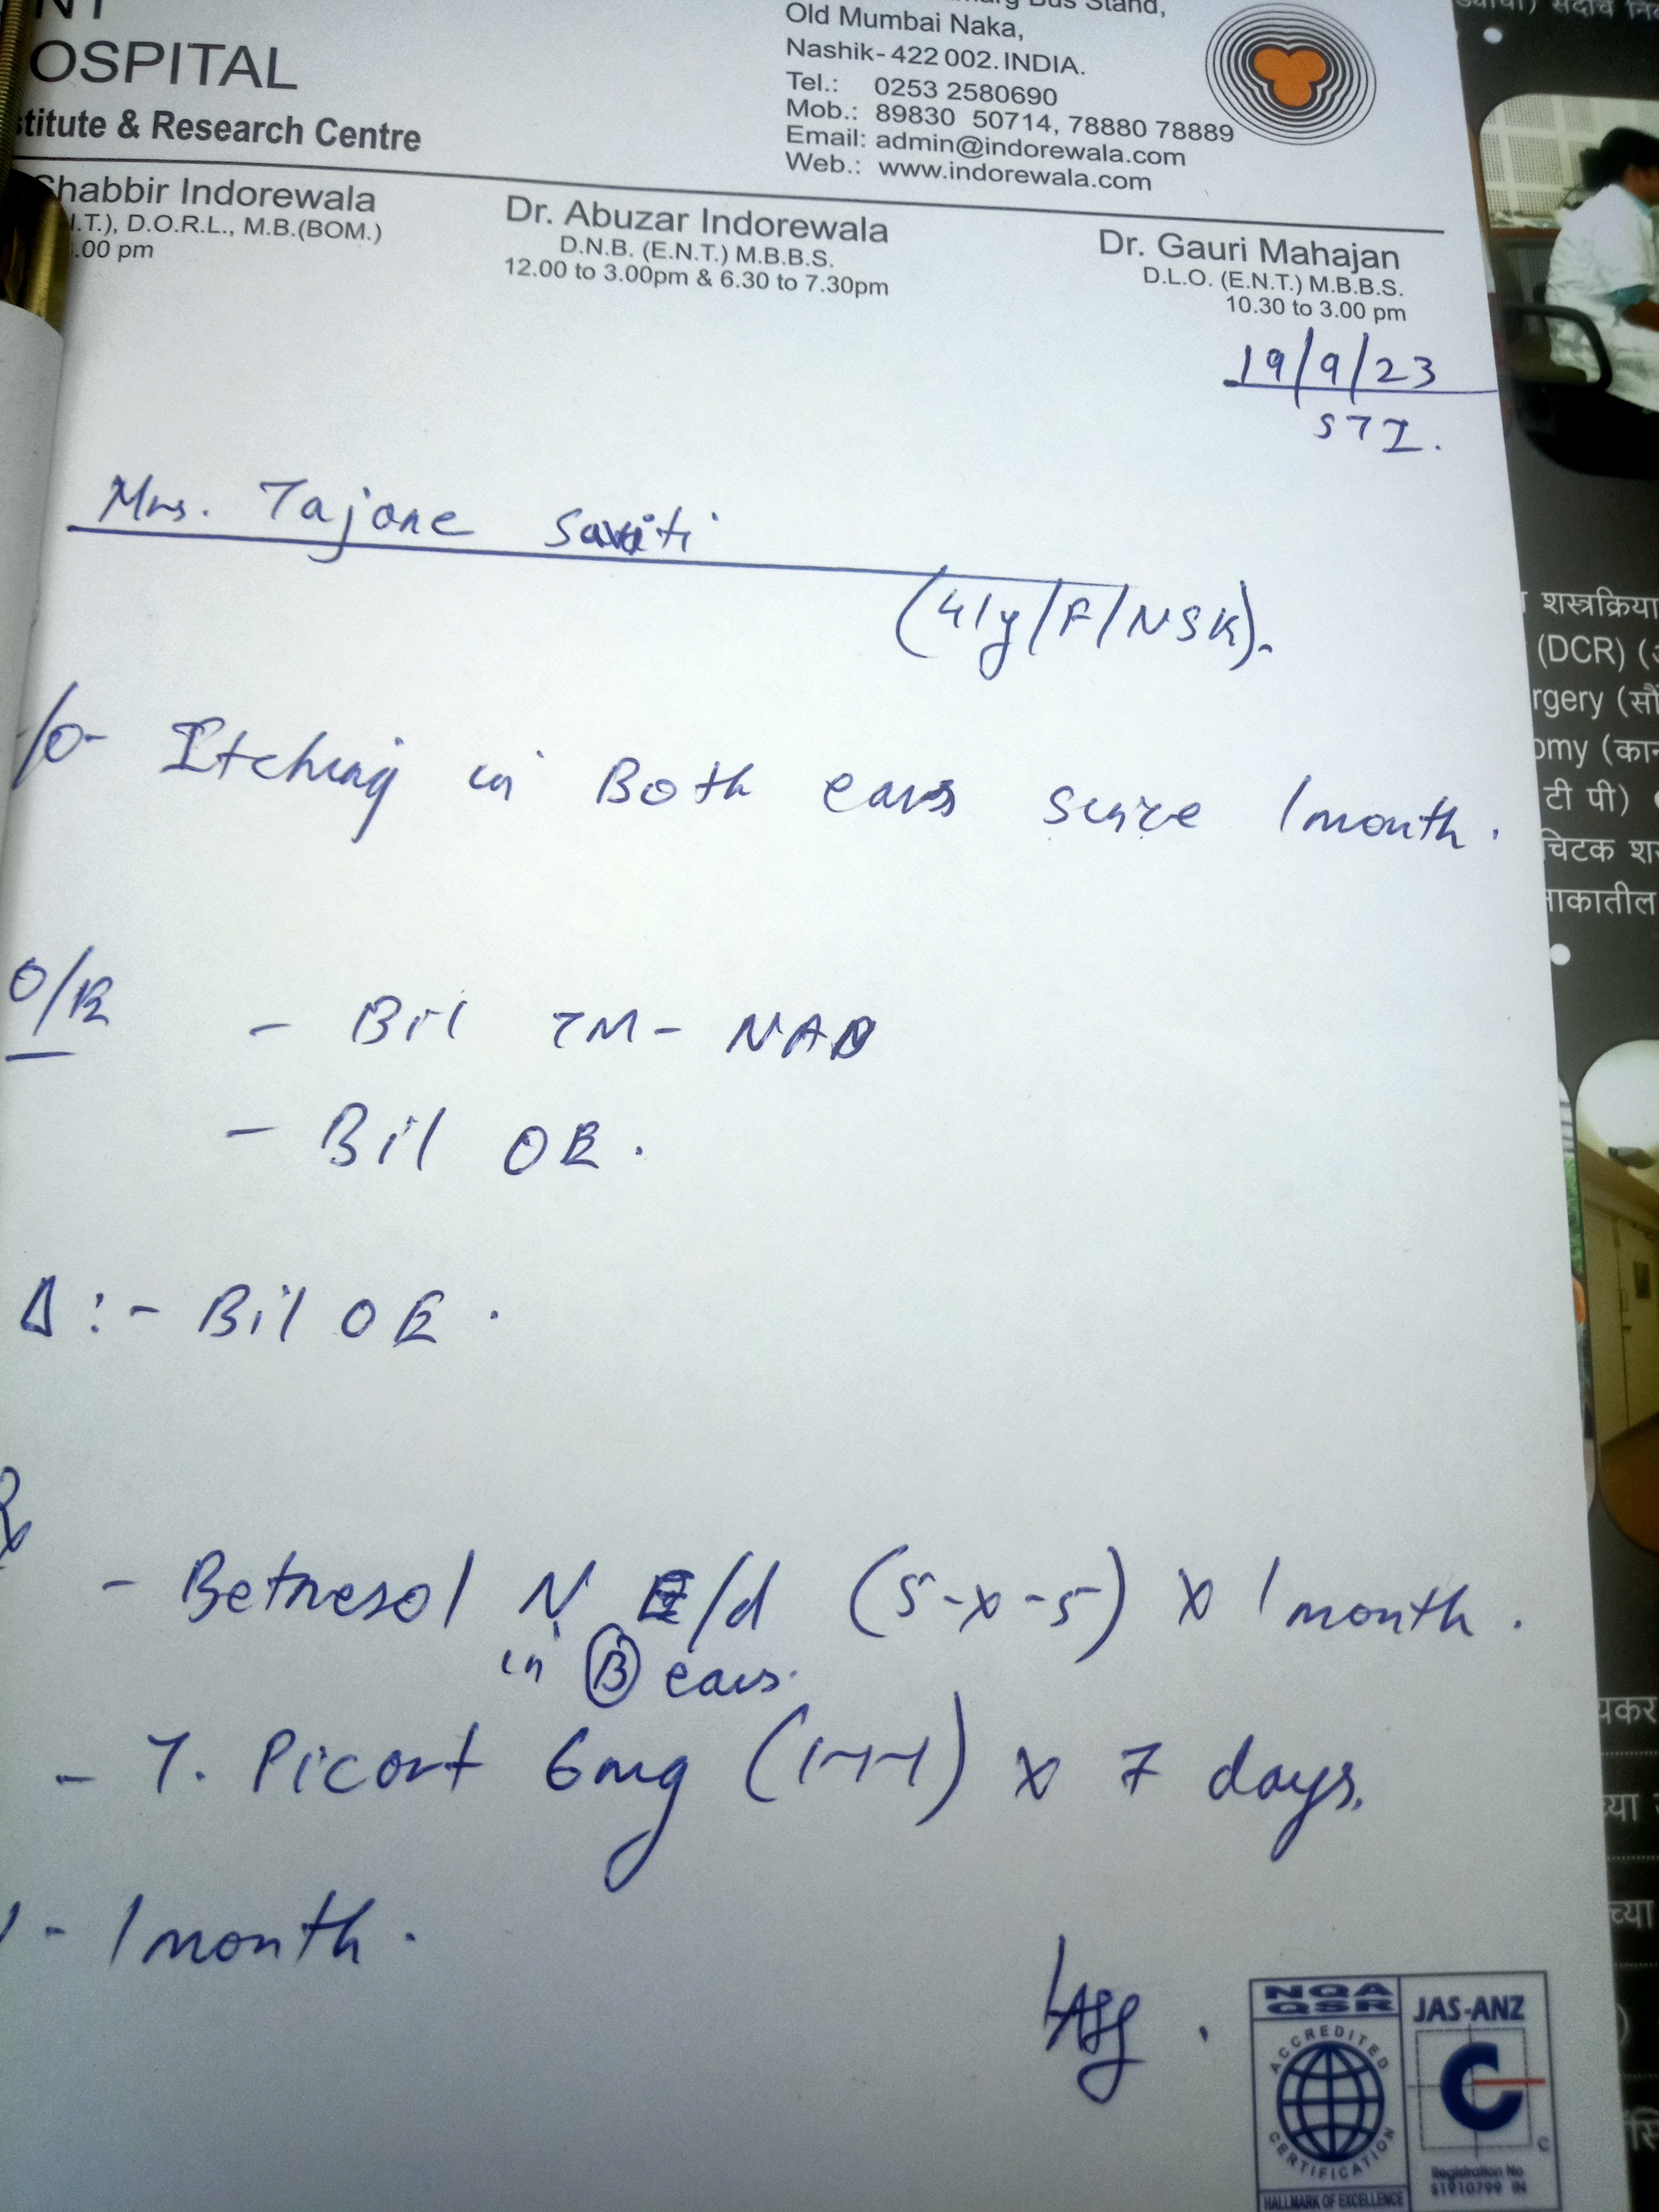 OSPITAL
titute & Research Centre
Bus Stand,
Old Mumbai Naka,
Nashik-422 002. INDIA.
Tel.: 0253 2580690
Mob.: 89830 50714, 78880 78889
Email: admin@indorewala.com
Web.: www.indorewala.com
Shabbir Indorewala
.T.), D.O.R.L., M.B.(BOM.)
.00 pm
Dr. Abuzar Indorewala
D.N.B. (E.N.T.) M.B.B.S.
12.00 to 3.00pm & 6.30 to 7.30pm
Dr. Gauri Mahajan
D.L.O. (E.N.T.) M.B.B.S.
10.30 to 3.00 pm
19/9/23
Mrs. Tajane
(41y/F/NSK).
/o- Itching in Both ears since 1 month.
O/E - Bil TM - NAD
- Bil OE.
Δ:- Bil OE.
- Betnesol N E/d (5-x-5) x 1 month.
in Ⓑ ears.
- T. Picort 6mg (1-1-1) x 7 days.
- 1 month.
NQA
QSR
ACCREDITED
CERTIFICATION
HALLMARK OF EXCELLENCE
JAS-ANZ
C
Registration No
शस्त्रक्रिया
(DCR) (
rgery (सौं
omy (कान
टी पी)
चिटक शस
नाकातील